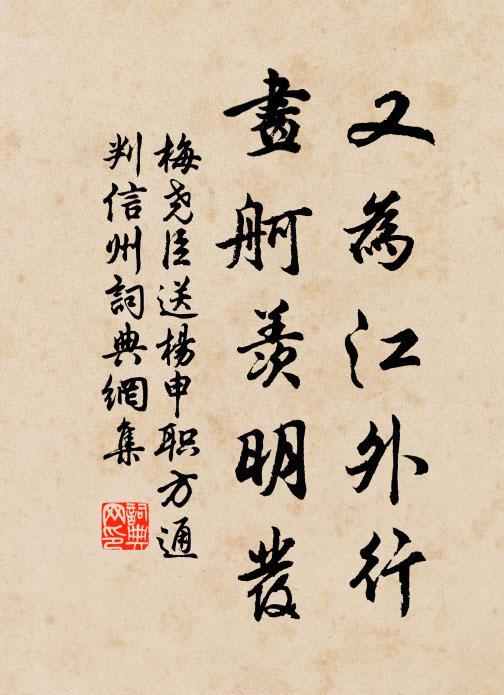 又為江外行
畫舸羨明發
梅堯臣送楊申职方通
判信州詞典網集
詞典
网印